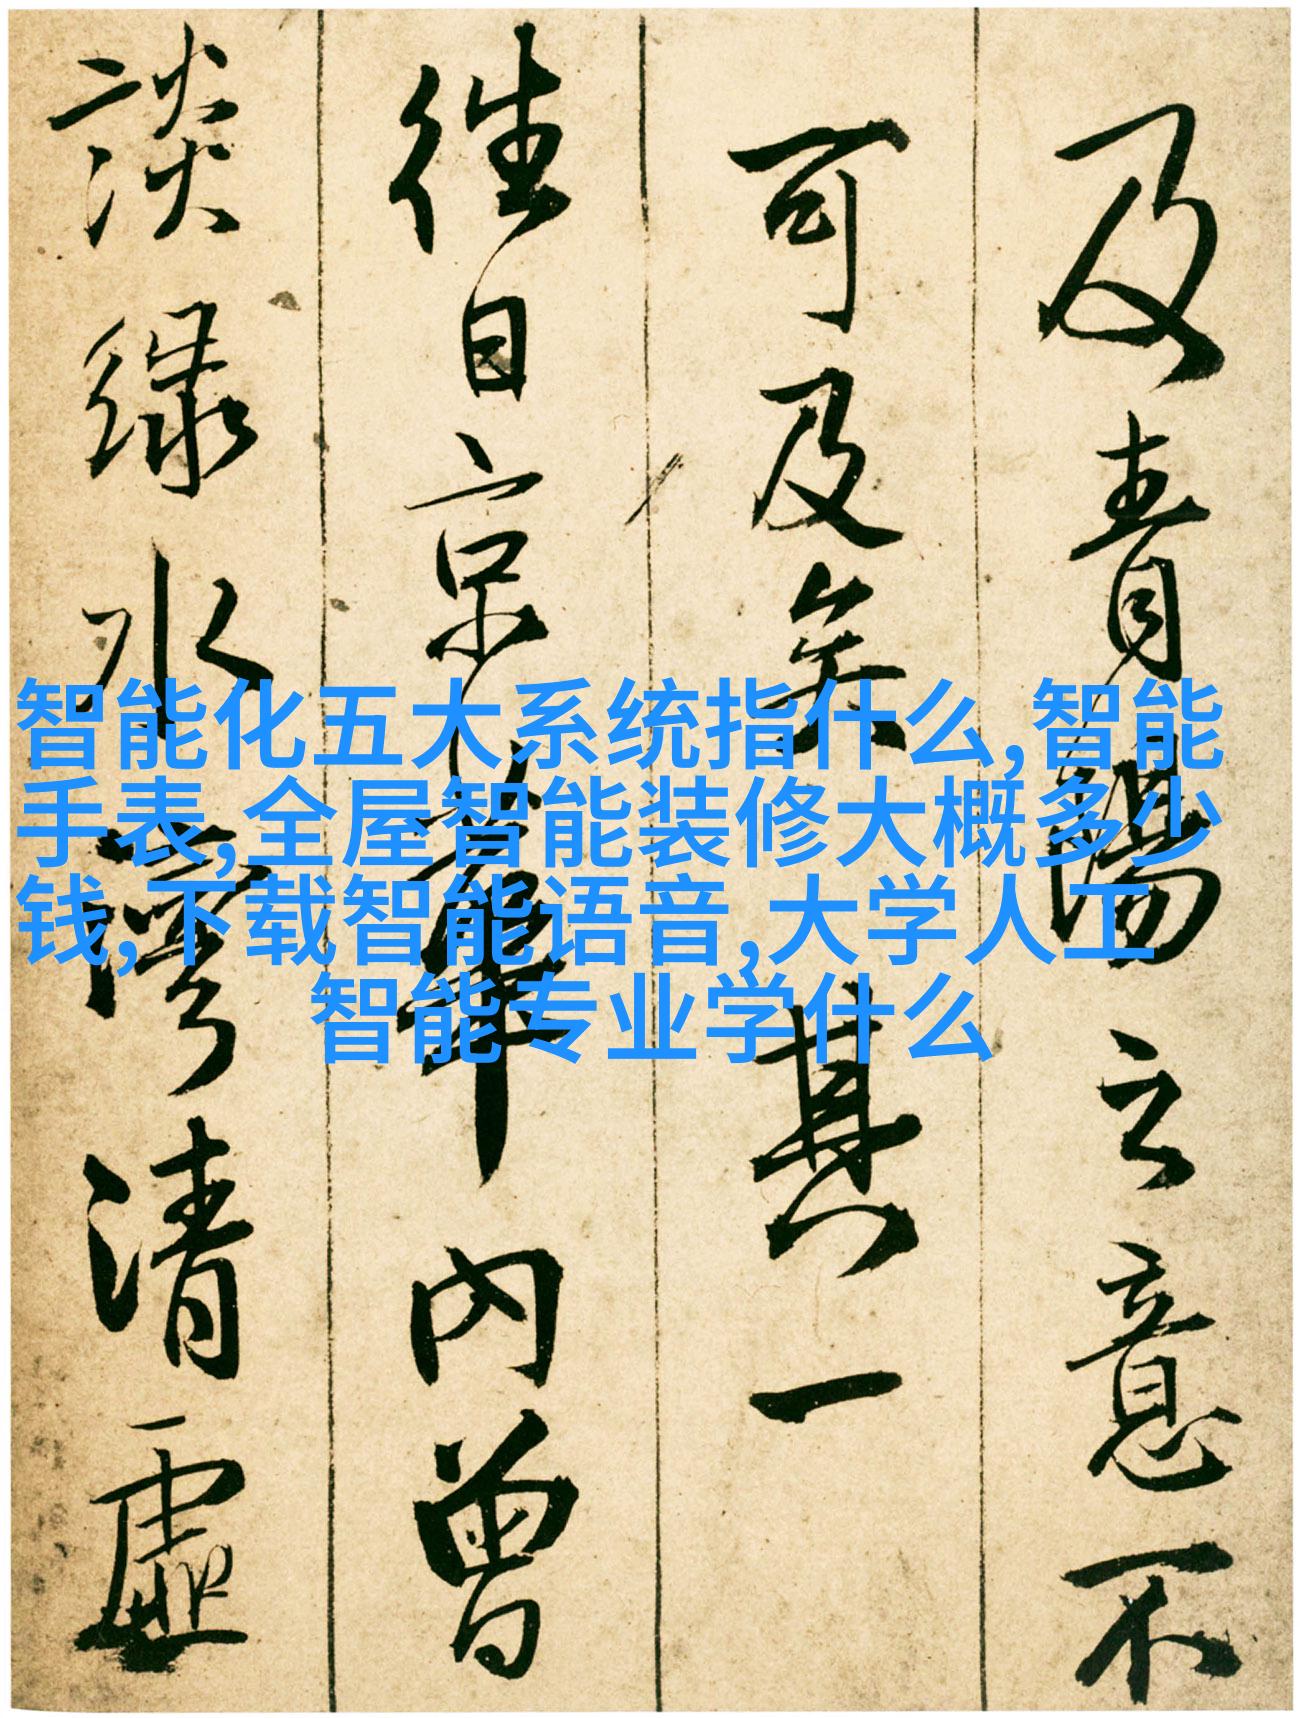 及青陽之意不
可及矣其一
往日京華內曾
談綠水灣清虛
智能化五大系统指什么,智能
手表,全屋智能装修大概多少
钱,下载智能语音,大学人工
智能专业学什么